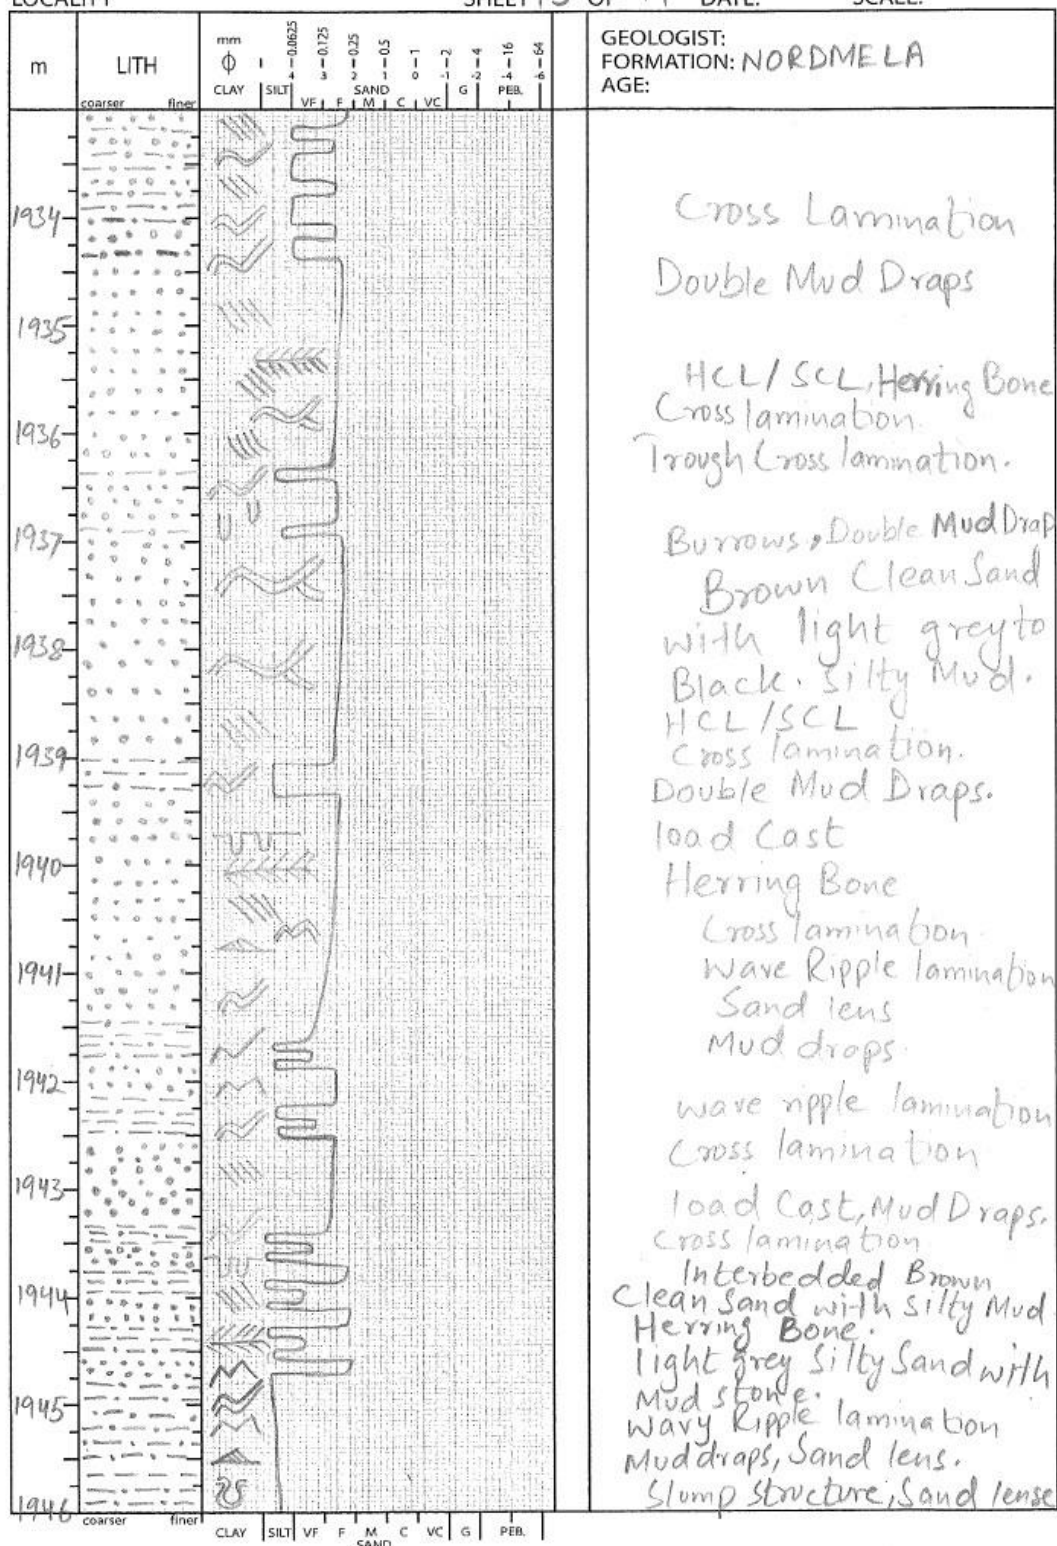 LOCALITY SHEET 13 OF DATE: SCALE:
m
LITH
coarser finer
mm
Φ
0.0625 0.125 0.25 0.5 1 2 4 16 64
4 3 2 1 0 -1 -2 -4 -6
CLAY SILT SAND G PEB.
VF F M C VC
GEOLOGIST:
FORMATION: NORDMELA
AGE:
1934
Cross Lamination
Double Mud Draps
1935
HCL/SCL, Herring Bone
Cross lamination.
1936
Trough Cross lamination.
1937
Burrows, Double Mud Drap
Brown Clean Sand
1938
with light grey to
Black. Silty Mud.
HCL/SCL
1939
Cross lamination.
Double Mud Draps.
load Cast
1940
Herring Bone
Cross lamination
1941
Wave Ripple lamination
Sand lens
Mud drops
1942
wave ripple lamination
Cross lamination
1943
load Cast, Mud Draps.
Cross lamination
Interbedded Brown
1944
Clean Sand with Silty Mud
Herring Bone.
light grey Silty Sand with
Mud stone.
1945
Wavy Ripple lamination
Muddraps, Sand lens.
1946
Slump Structure, Sand lense
coarser finer
CLAY SILT VF F M C VC G PEB.
SAND